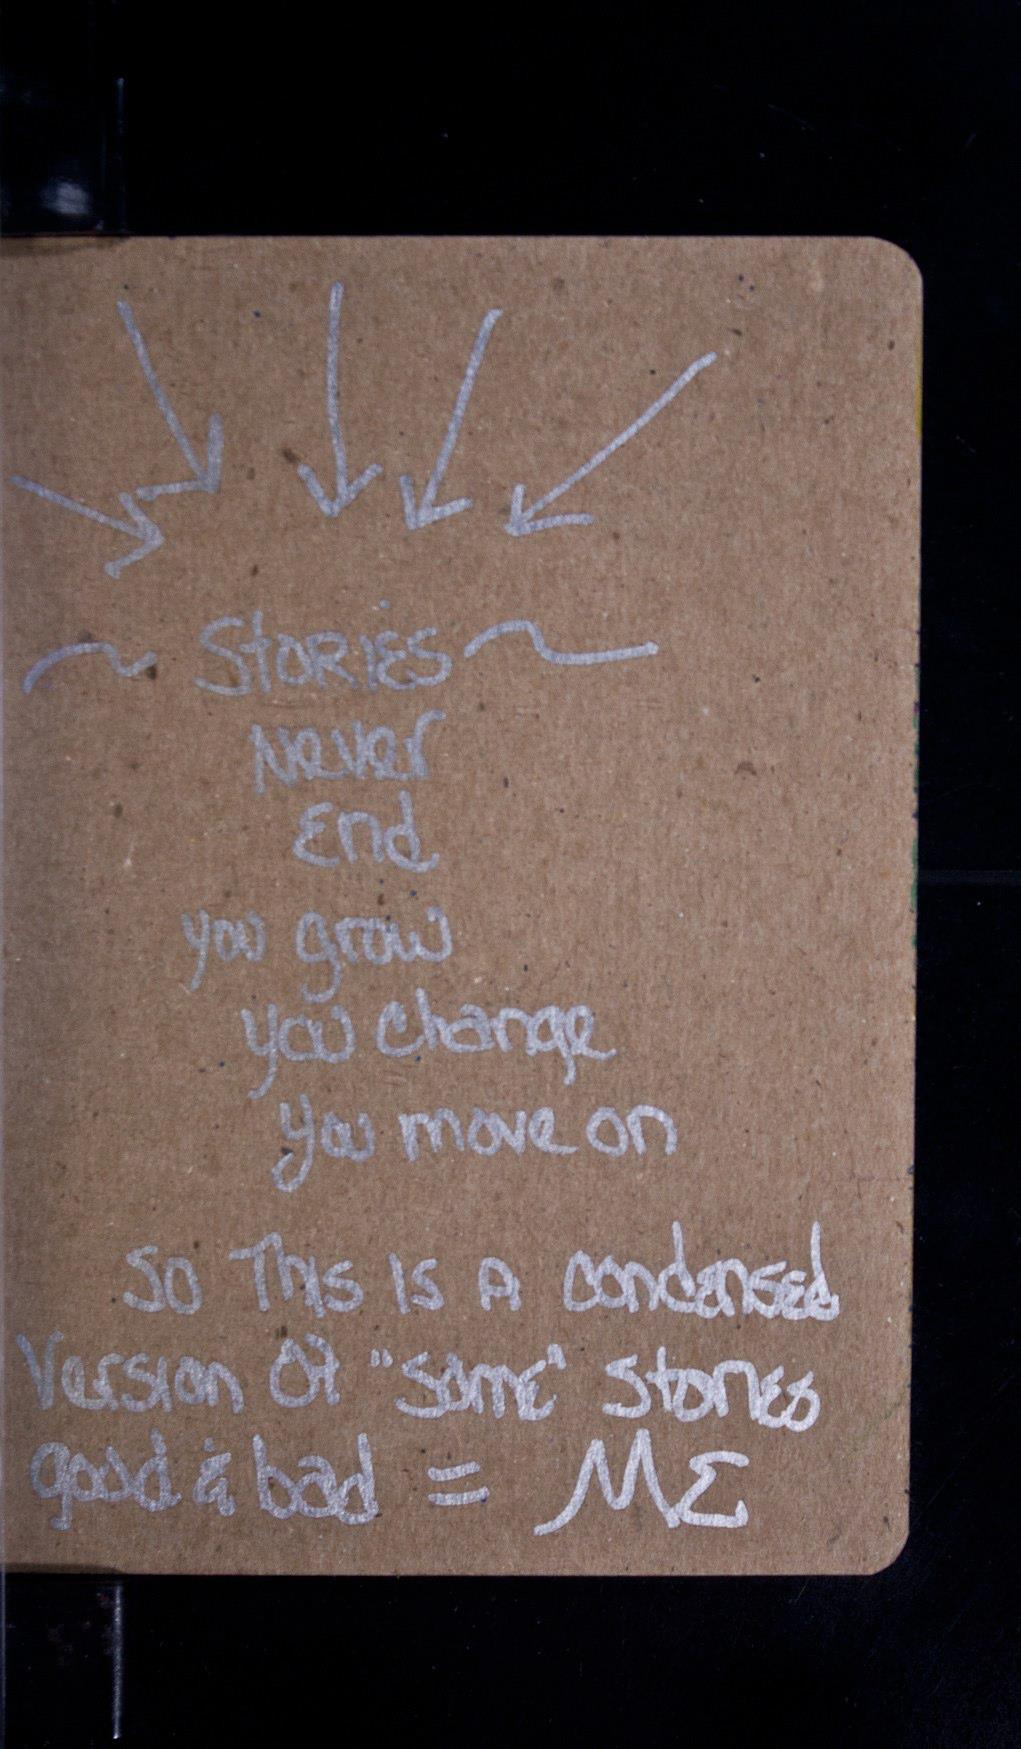 ~ StORiES ~
Never
End
you grow
you change
you move on
So This Is A condensed
Version Of "some" stories
good & bad = ME